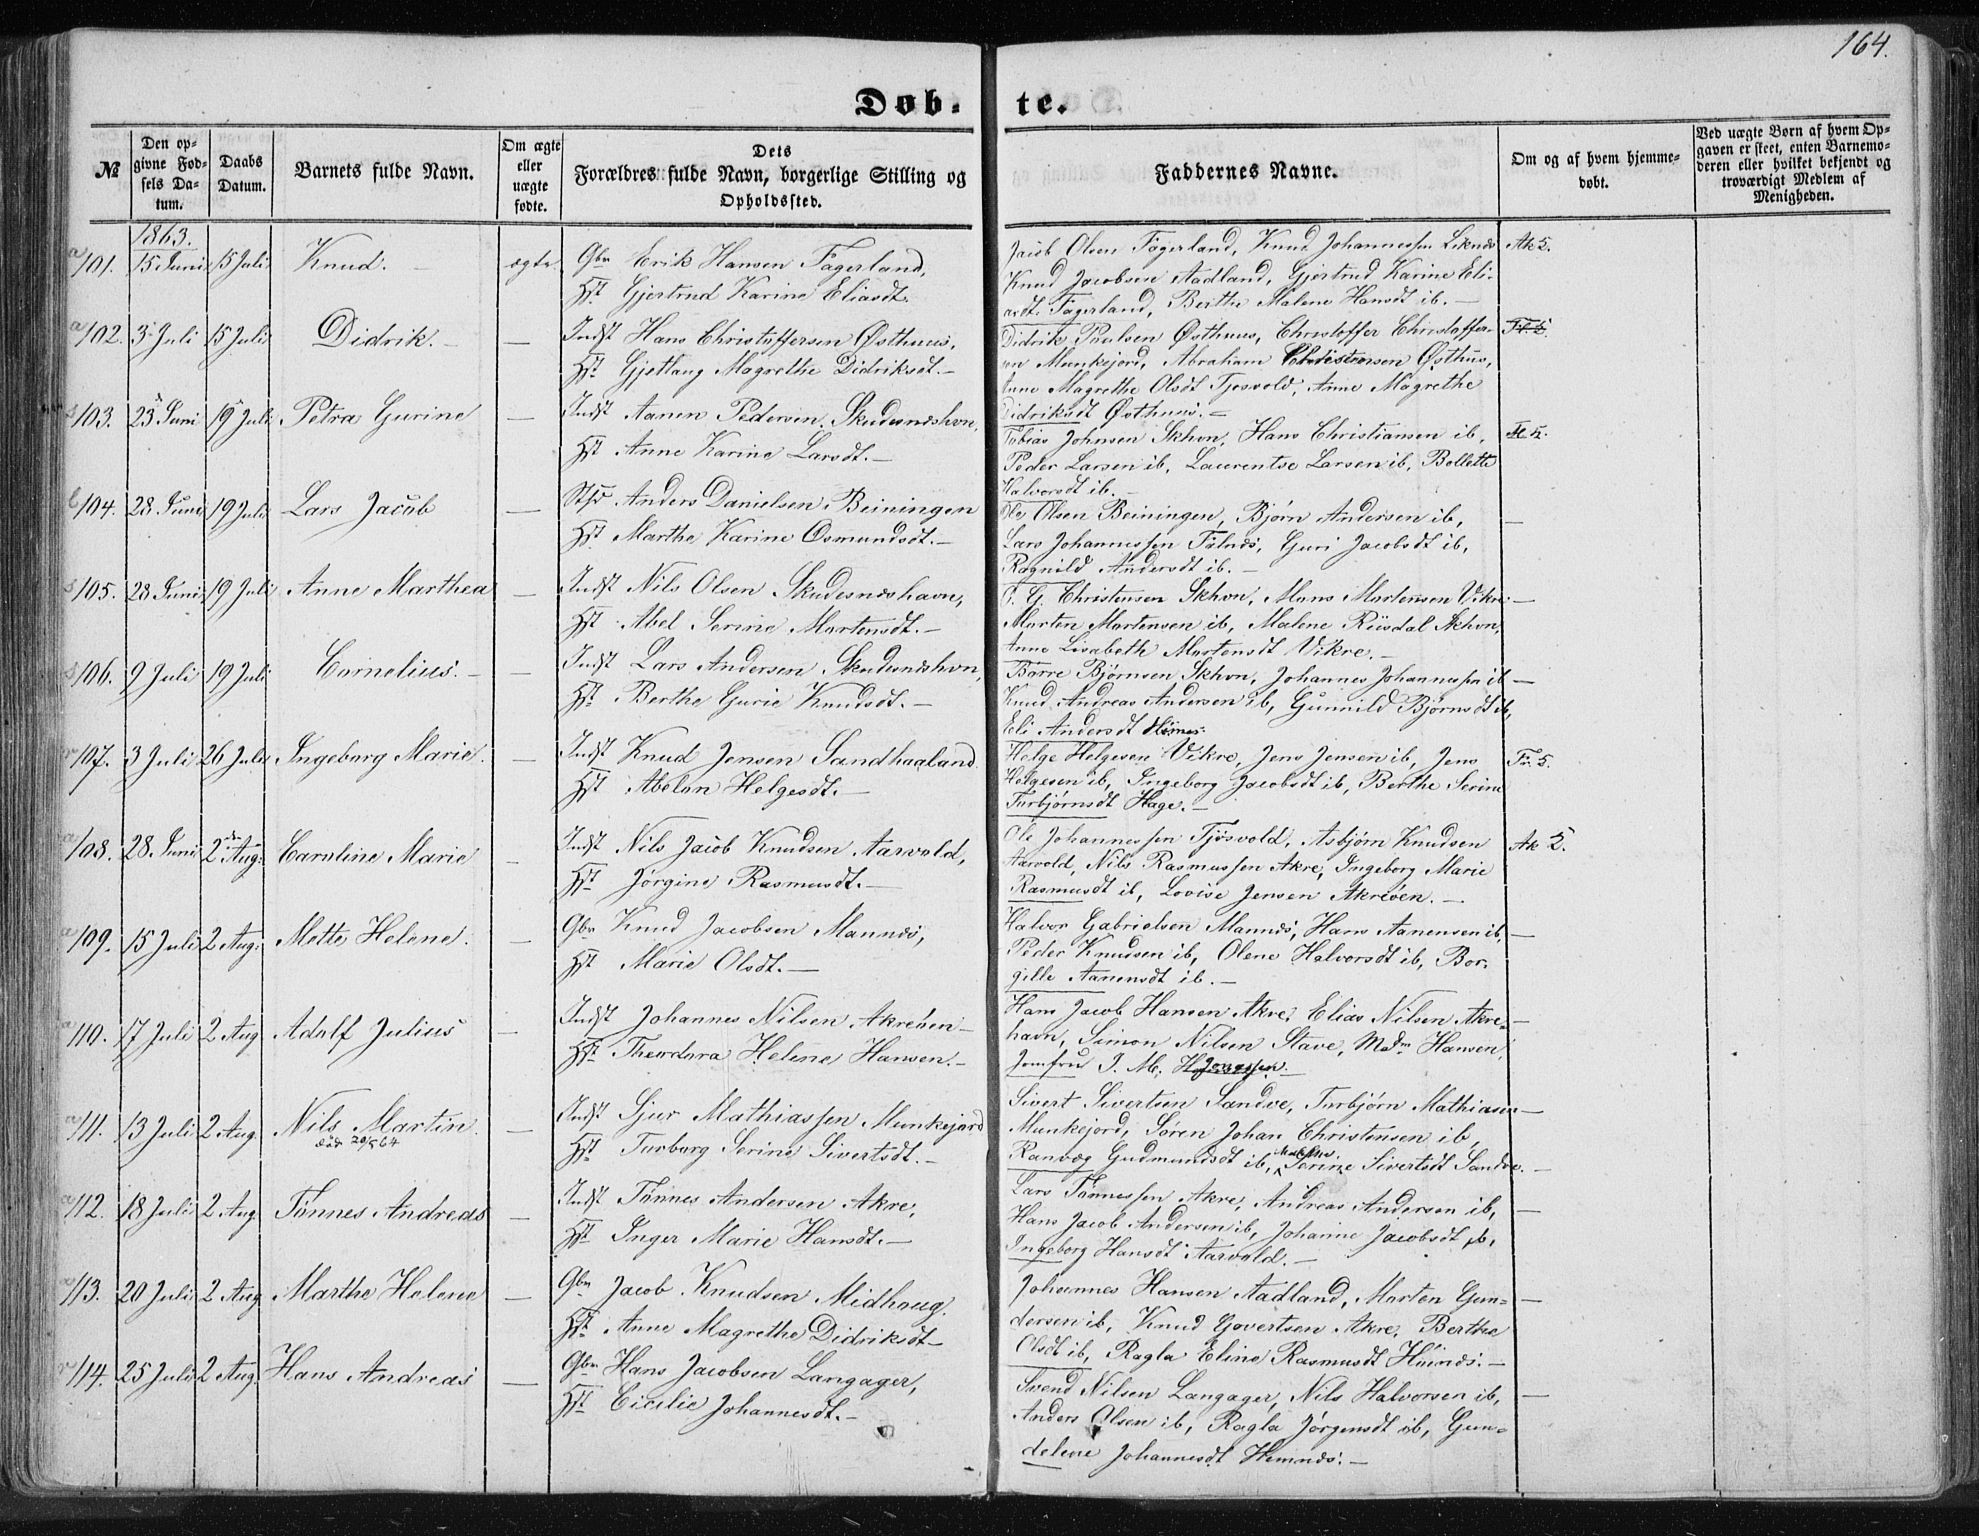 164.
Døb-
te.
№
Den op-
givne Fød-
sels Da-
tum.
Daabs
Datum.
Barnets fulde Navn.
Om ægte
eller
uægte
fødte.
Dets
Forældres fulde Navn, borgerlige Stilling og
Opholdssted.
Faddernes Navne.
Om og af hvem hjemme-
døbt.
Ved uægte Børn af hvem Op-
gaven er skeet, enten Barnemo-
deren eller hvilket bekjendt og
troværdigt Medlem af
Menigheden.
1863.
101. 15 Juni 15 Juli Knud. — ægte Gbr Erik Hansen Fagerland,
Hst Gjertrud Karine Eliasdt.
Jacob Olsen Fagerland, Knud Johannessen Liknes Ak 5.
Knud Jacobsen Aadland, Gjertrud Karine Eli-
asdt. Fagerland, Berthe Malene Hansdt ib. —
102. 3 Juli 15 Juli Didrik. — — Indst Hans Christoffersen Østhuus,
Hst Gjetlaug Magrethe Didriksdt. —
Didrik Poulsen Østhuus, Christoffer Christoffer-
sen Munkejord, Abraham Christensen Østhus,
Anne Magrethe Olsdt Tjosvold, Anne Magrethe
Didriksdt Østhuus. —
103. 23 Juni 19 Juli Petra Gurine — Indst Aanen Pedersen Skudesneshvn,
Hst Anne Karine Larsdt. —
Tobias Johnsen Skhvn, Hans Christiansen ib,
Peder Larsen ib, Laurentse Larsen ib, Bollette
Halvorsdt ib. —
104. 28 Juni 19 Juli Lars Jacob — Anders Danielsen Beiningen
Hst Marthe Karine Osmundsdt. —
Ole Olsen Beiningen, Bjørn Andersen ib, —
Lars Johannessen Falnes, Guri Jacobsdt ib,
Ragnild Andersdt ib. —
105. 28 Juni 19 Juli Anne Marthea — Indst Nils Olsen Skudesneshavn,
Hst Abel Serine Martensdt. —
Christensen Skhvn, Mons Martensen Vikre —
Marten Martensen ib, Malene Riisdal Skhvn,
Anne Lisabeth Martensdt Vikre. —
106. 9 Juli 19 Juli Cornelius. — — Indst Lars Andersen Skudesneshvn,
Hst Berthe Gurie Knudsdt. —
Børre Bjørnsen Skhvn, Johannes Johannessen ib —
Knud Andreas Andersen ib, Gunnild Bjørnsdt ib,
Eli Andersdt
107. 3 Juli 26 Juli Ingeborg Marie. — Indst Knud Jensen Sandhaaland
Hst Abelon Helgesdt. —
Helge Helgesen Vikre, Jens Jensen ib, Jens
Helgesen ib, Ingeborg Jacobsdt ib, Berthe Serine
Torbjørnsdt Hage. —
108. 28 Juni 2 Aug. Caroline Marie — Indst Nils Jacob Knudsen Aarvold,
Hst Jørgine Rasmusdt. —
Ole Johannessen Tjøsvold, Asbjørn Knudsen Ak 5.
Aarvold, Nils Rasmussen Akre, Ingeborg Marie
Rasmusdt ib, Lovise Jensen Akreøen. —
109. 15 Juli 2 Aug. Mette Helene. — Gbr Knud Jacobsen Mannes,
Hst Marie Olsdt. —
Halvor Gabrielsen Mannes, Hans Aanensen ib, —
Peder Knudsen ib, Olene Halvorsdt ib, Bor-
gille Aanensdt ib. —
110. 17 Juli 2 Aug Adolf Julius — Indst Johannes Nilsen Akreøen —
Hst Theodora Helene Hansen. —
Hans Jacob Hansen Akre, Elias Nilsen Akre- —
havn, Simon Nilsen Stave, Madm Hansen,
Jomfru I. M.
111. 13 Juli 2 Aug Nils Martin. — Indst Sjur Mathiassen Munkejord
død 20/5 64
Hst Torborg Serine Sivertsdt. —
Sivert Sivertsen Sandve, Torbjørn Mathiasen —
Munkejord, Søren Johan Christensen ib,
Ranvæg Gudmundsdt ib, Serine Sivertsdt Sandve. —
112. 18 Juli 2 Aug. Tønnes Andreas — Indst Tønnes Andersen Akre,
Hst Inger Marie Hansdt. —
Lars Tønnessen Akre, Andreas Andersen ib, —
Hans Jacob Andersen ib, Johanne Jacobsdt ib,
Ingeborg Hansdt Aarvold. —
113. 20 Juli 2 Aug Marthe Helene — Gbr Jacob Knudsen Midhaug.
Hst Anne Magrethe Didriksdt —
Johannes Hansen Aadland, Morten Gun- —
dersen ib, Knud Govertsen Akre, Berthe
Olsdt ib, Ragla Eline Rasmusdt Hiines. —
114. 25 Juli 2 Aug. Hans Andreas — Gbr Hans Jacobsen Langager,
Hst Cicilie Johannesdt. —
Svend Nilsen Langager, Nils Halvorsen ib, —
Anders Olsen ib, Ragla Jørgensdt ib, Gun-
delene Johannesdt Hemnes. —